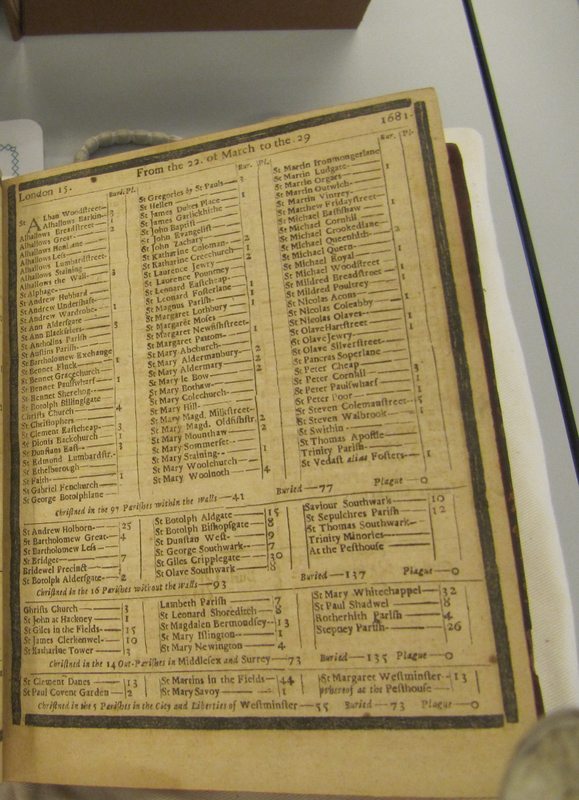 London 15. From the 22. of March to the 29 1681.
Bur. Pl.
St Alban Woodstreet
Alhallows Barkin
Alhallows Breadstreet
Alhallows Great
Alhallows Honilane
Alhallows Less
Alhallows Lumbardstreet
Alhallows Staining
Alhallows the Wall
St Alphage
St Andrew Hubbard
St Andrew Undershaft
St Andrew Wardrobe 1
St Ann Aldersgate
St Ann Blackfriers
St Antholins Parish
St Austins Parish
St Bartholomew Exchange
St Bennet Finck
St Bennet Gracechurch
St Bennet Paulswharf
St Bennet Sherehog
St Botolph Billingsgate
Christs Church 4
St Christophers
St Clement Eastcheap 3
St Dionis Backchurch 1
St Dunstans East 3
St Edmund Lumbardstr.
St Ethelborough
St Faith 1
St Gabriel Fenchurch
St George Botolphlane
Bur. Pl.
St Gregories by St Pauls
St Hellen
St James Dukes Place 1
St James Garlickhithe
St John Baptist
St John Evangelist
St John Zachary
St Katharine Coleman 2
St Katharine Creechurch 1
St Laurence Jewry 2
St Laurence Pountney
St Leonard Eastcheap 1
St Leonard Fosterlane 1
St Magnus Parish 1
St Margaret Lothbury 1
St Margaret Moses
St Margaret Newfishstreet
St Margaret Pattons 1
St Mary Abchurch
St Mary Aldermanbury 2
St Mary Aldermary 2
St Mary le Bow
St Mary Bothaw
St Mary Colechurch
St Mary Hill
St Mary Magd. Milkstreet
St Mary Magd. Oldfishstr. 2
St Mary Mounthaw 2
St Mary Sommerset
St Mary Staining
St Mary Woolchurch
St Mary Woolnoth 4
Bur. Pl.
St Martin Ironmongerlane
St Martin Ludgate
St Martin Orgars 1
St Martin Outwich
St Martin Vintrey
St Matthew Fridaystreet
St Michael Bassishaw
St Michael Cornhil
St Michael Crookedlane
St Michael Queenhith 2
St Michael Quern
St Michael Royal
St Michael Woodstreet
St Mildred Breadstreet
St Mildred Poultrey
St Nicolas Acons
St Nicolas Coleabby
St Nicolas Olaves
St Olave Hartstreet 1
St Olave Jewry
St Olave Silverstreet
St Pancras Soperlane
St Peter Cheap 3
St Peter Cornhil 1
St Peter Paulswharf 1
St Peter Poor
St Steven Colemanstreet 5
St Steven Walbrook 1
St Swithin
St Thomas Apostle
Trinity Parish
St Vedast alias Fosters 1
Christned in the 97 Parishes within the Walls—41 Buried—77 Plague—0
St Andrew Holborn—25
St Bartholomew Great—4
St Bartholomew Less
St Bridget—7
Bridewel Precinct
St Botolph Aldersgate—2
St Botolph Aldgate—15
St Botolph Bishopsgate—8
St Dunstan West—9
St George Southwark—7
St Giles Cripplegate—30
St Olave Southwark—8
Saviour Southwark—10
St Sepulchres Parish—12
St Thomas Southwark
Trinity Minories
At the Pesthouse
Christned in the 16 Parishes without the Walls—93 Buried—137 Plague—0
Christs Church—3
St John at Hackney—1
St Giles in the Fields—15
St James Clerkenwel—10
St Katharine Tower—3
Lambeth Parish—7
St Leonard Shoreditch—8
St Magdalen Bermondsey—13
St Mary Islington—1
St Mary Newington—4
St Mary Whitechappel—32
St Paul Shadwel—8
Rotherhith Parish—4
Stepney Parish—26
Christned in the 14 Out-Parishes in Middlesex and Surrey—73 Buried—135 Plague—0
St Clement Danes—13
St Paul Covent Garden—2
St Martins in the Fields—44
St Mary Savoy—1
St Margaret Westminster—13
whereof at the Pesthouse
Christned in the 5 Parishes in the City and Liberties of Westminster—55 Buried—73 Plague—0